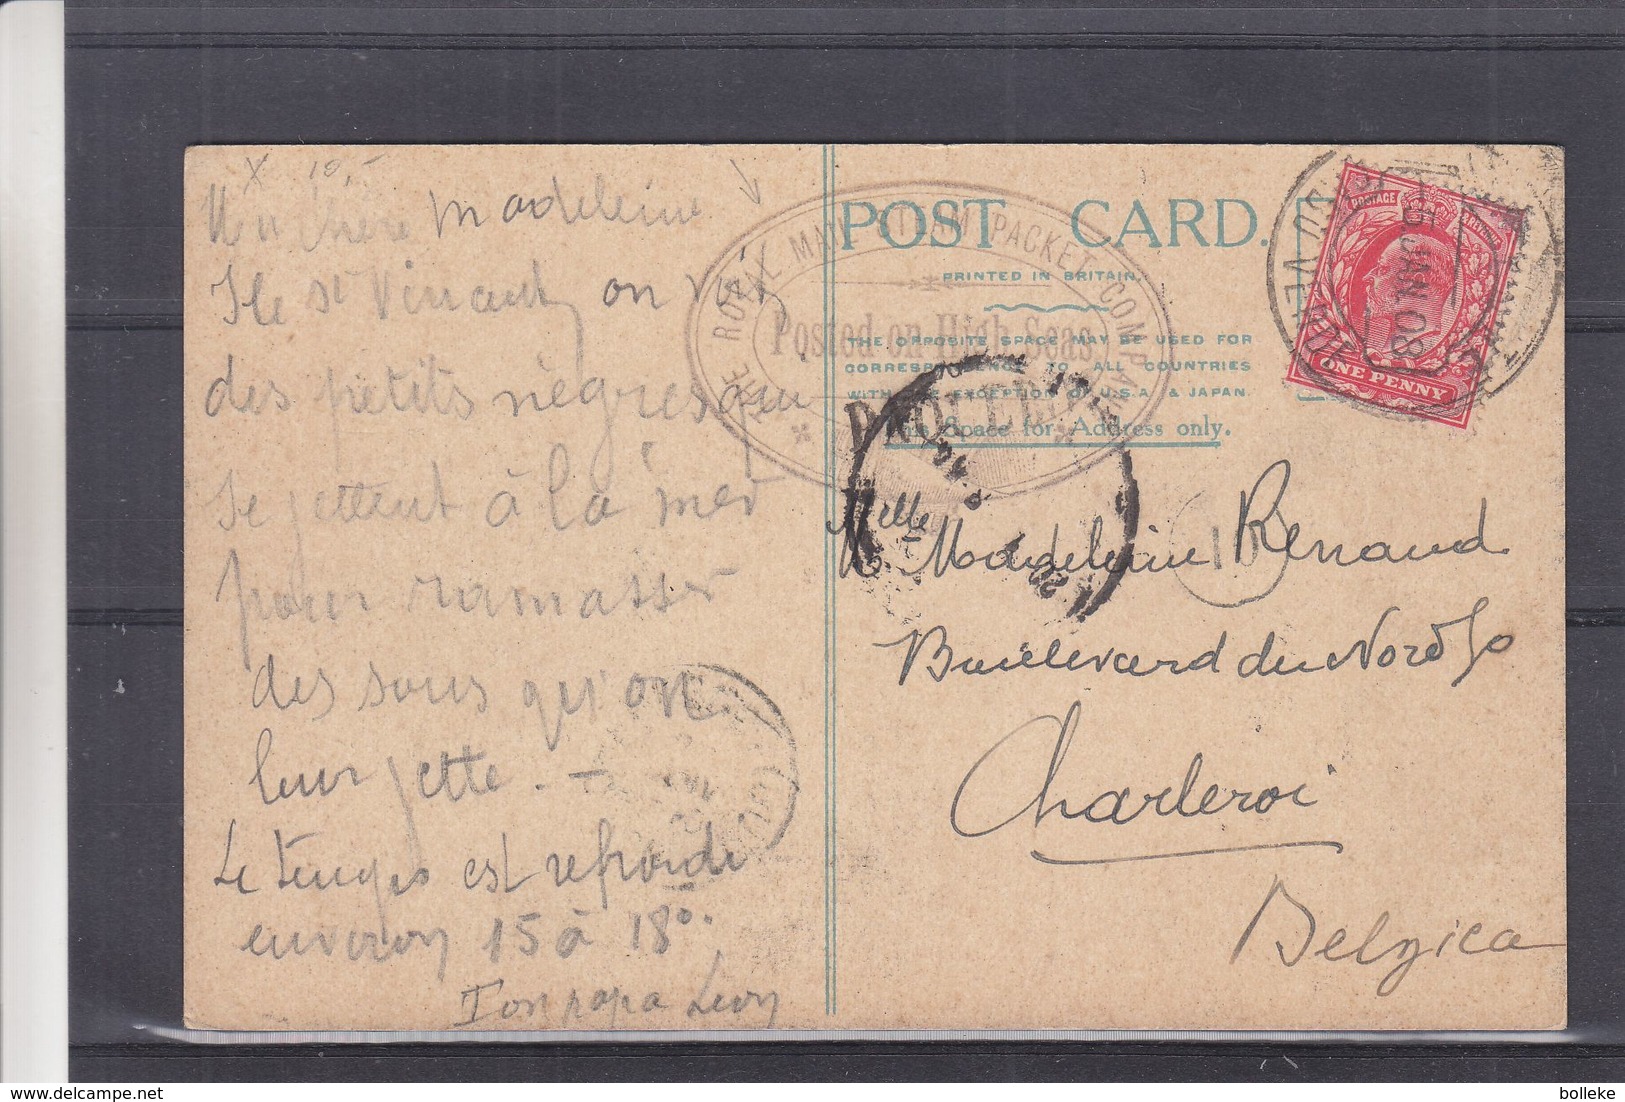 X 10,-
Ma chère Madeleine
Ile St Vincent, on voit
des petits nègres qui
se jettent à la mer
pour ramasser
des sous qu'on
leur jette. -
Le temps est refroidi
environ 15 à 18°.
Ton papa Léon
POST CARD.
PRINTED IN BRITAIN.
THE OPPOSITE SPACE MAY BE USED FOR
CORRESPONDENCE TO ALL COUNTRIES
WITH THE EXCEPTION OF U.S.A. & JAPAN.
This Space for Address only.
THE ROYAL MAIL STEAM PACKET COMPANY
Posted on High Seas.
PAQUEBOT
POSTAGE REVENUE
ONE PENNY
JAN 08
Melle Madeleine Renaud
Boulevard du Nord 50
Charleroi
Belgica
bolleke